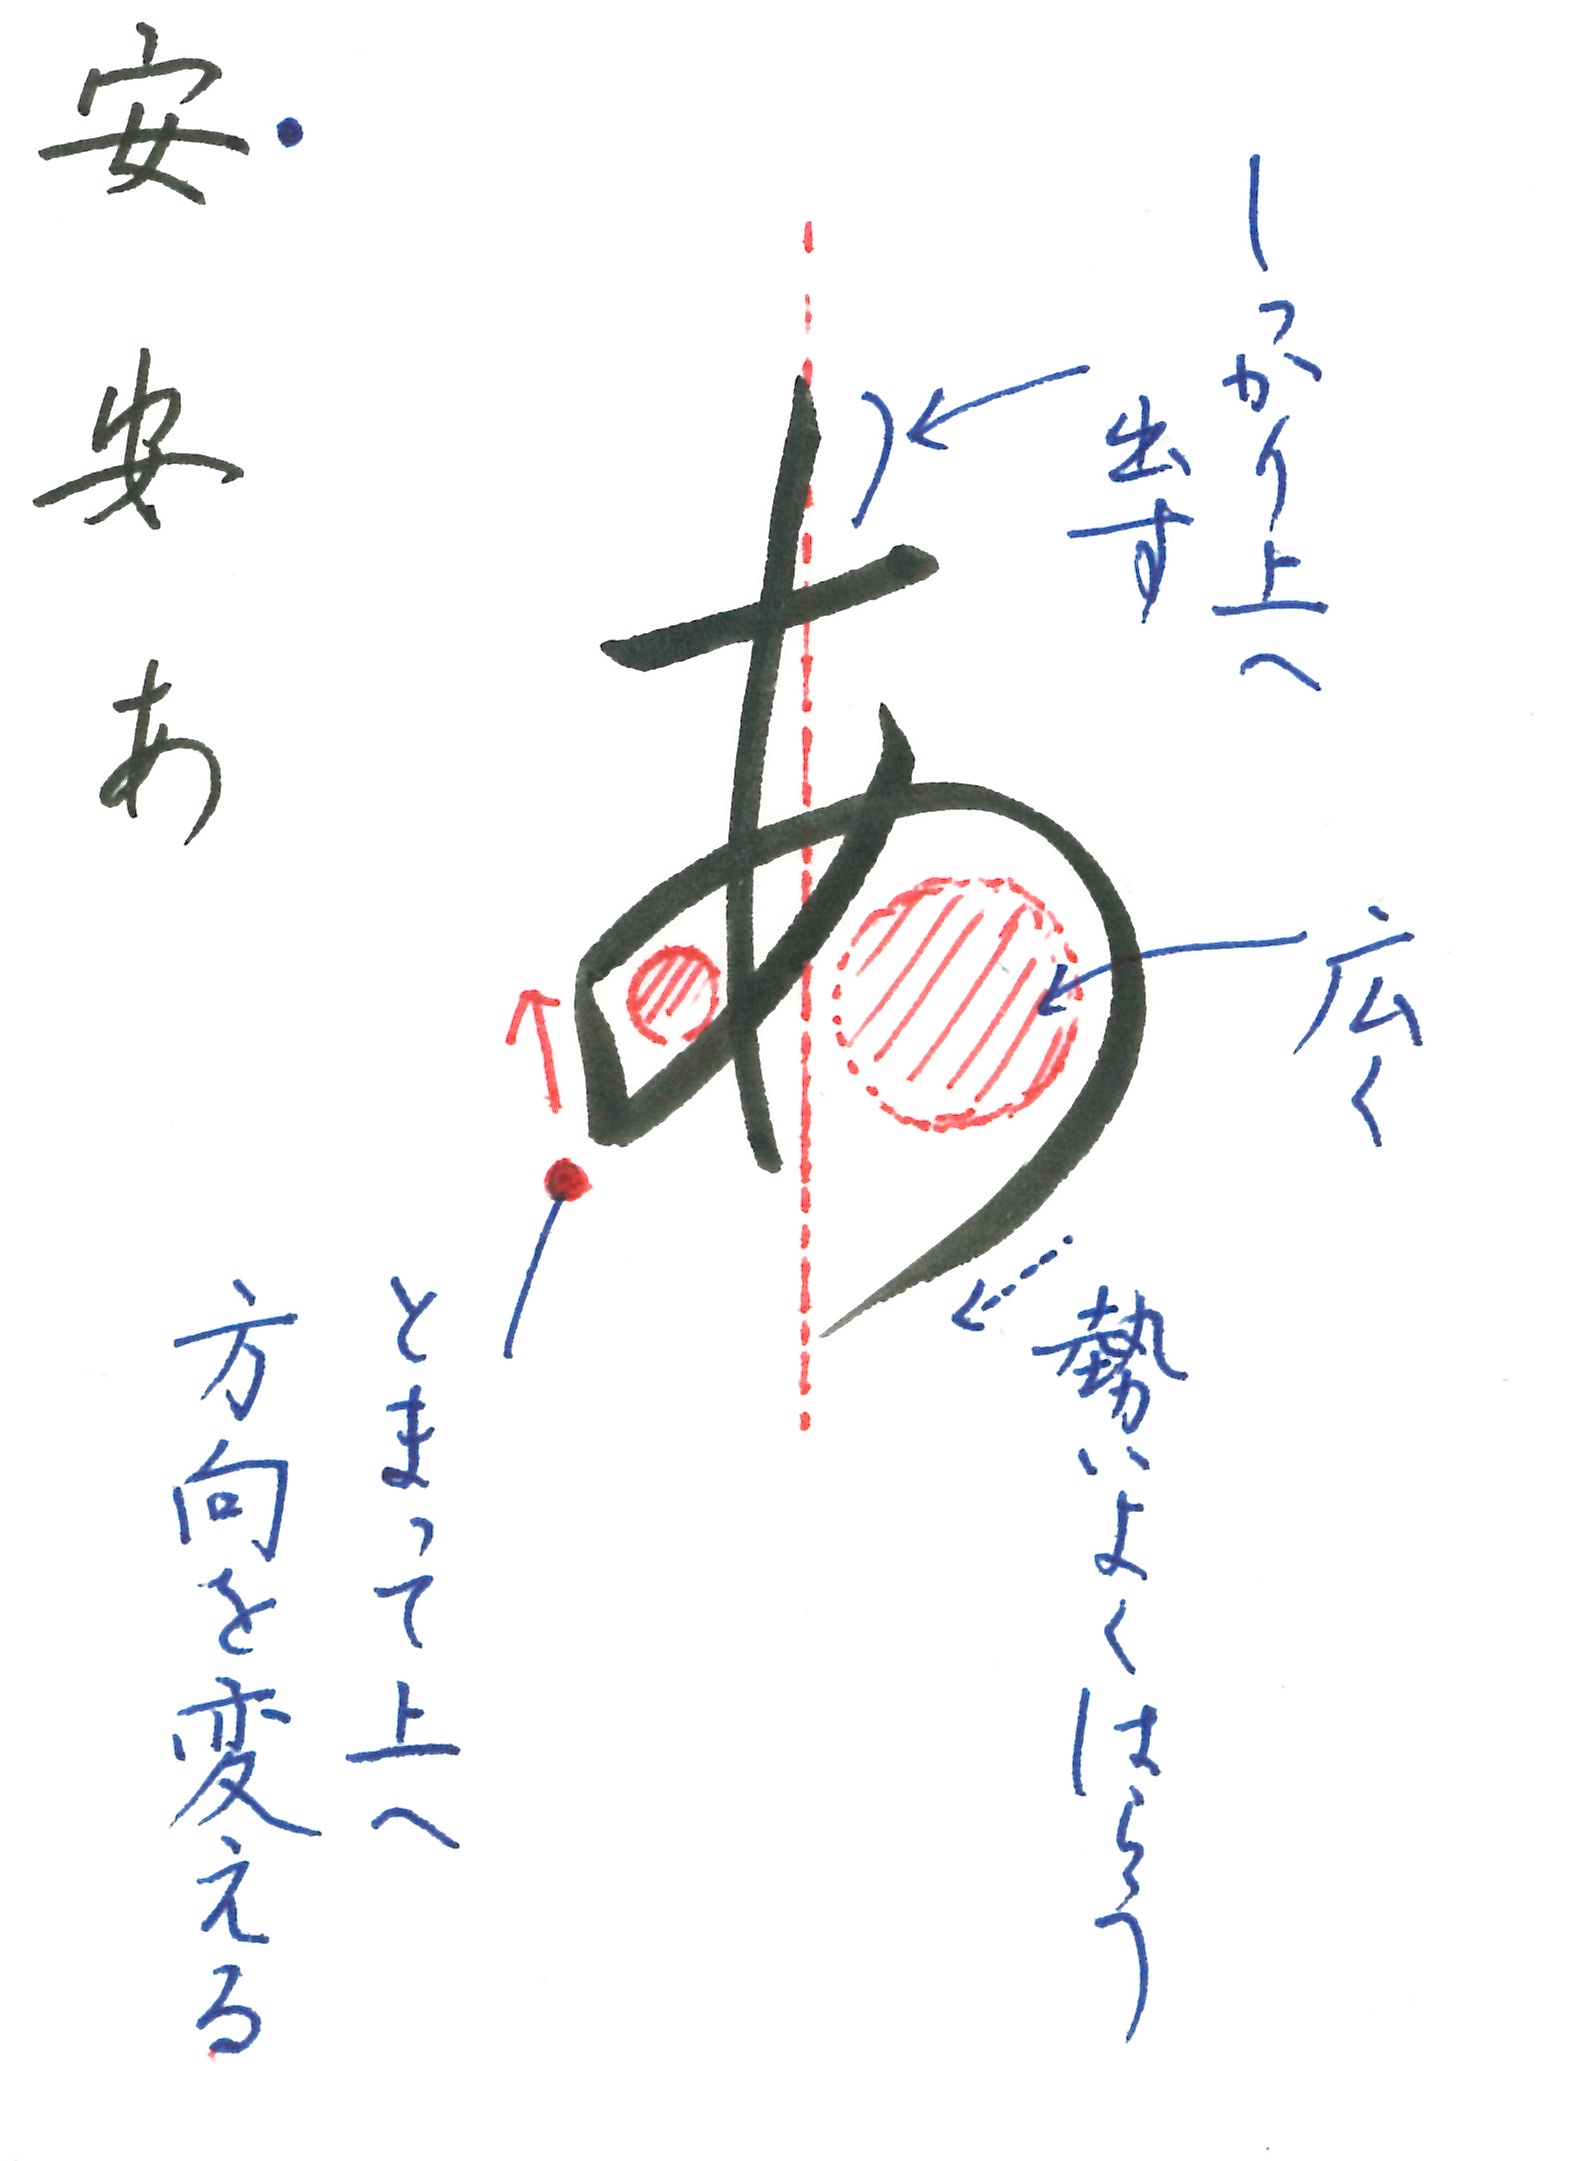 しっかり上へ
出す
広く
あ
勢いよくはらう
とまって上へ
方向を変える
安
安
あ